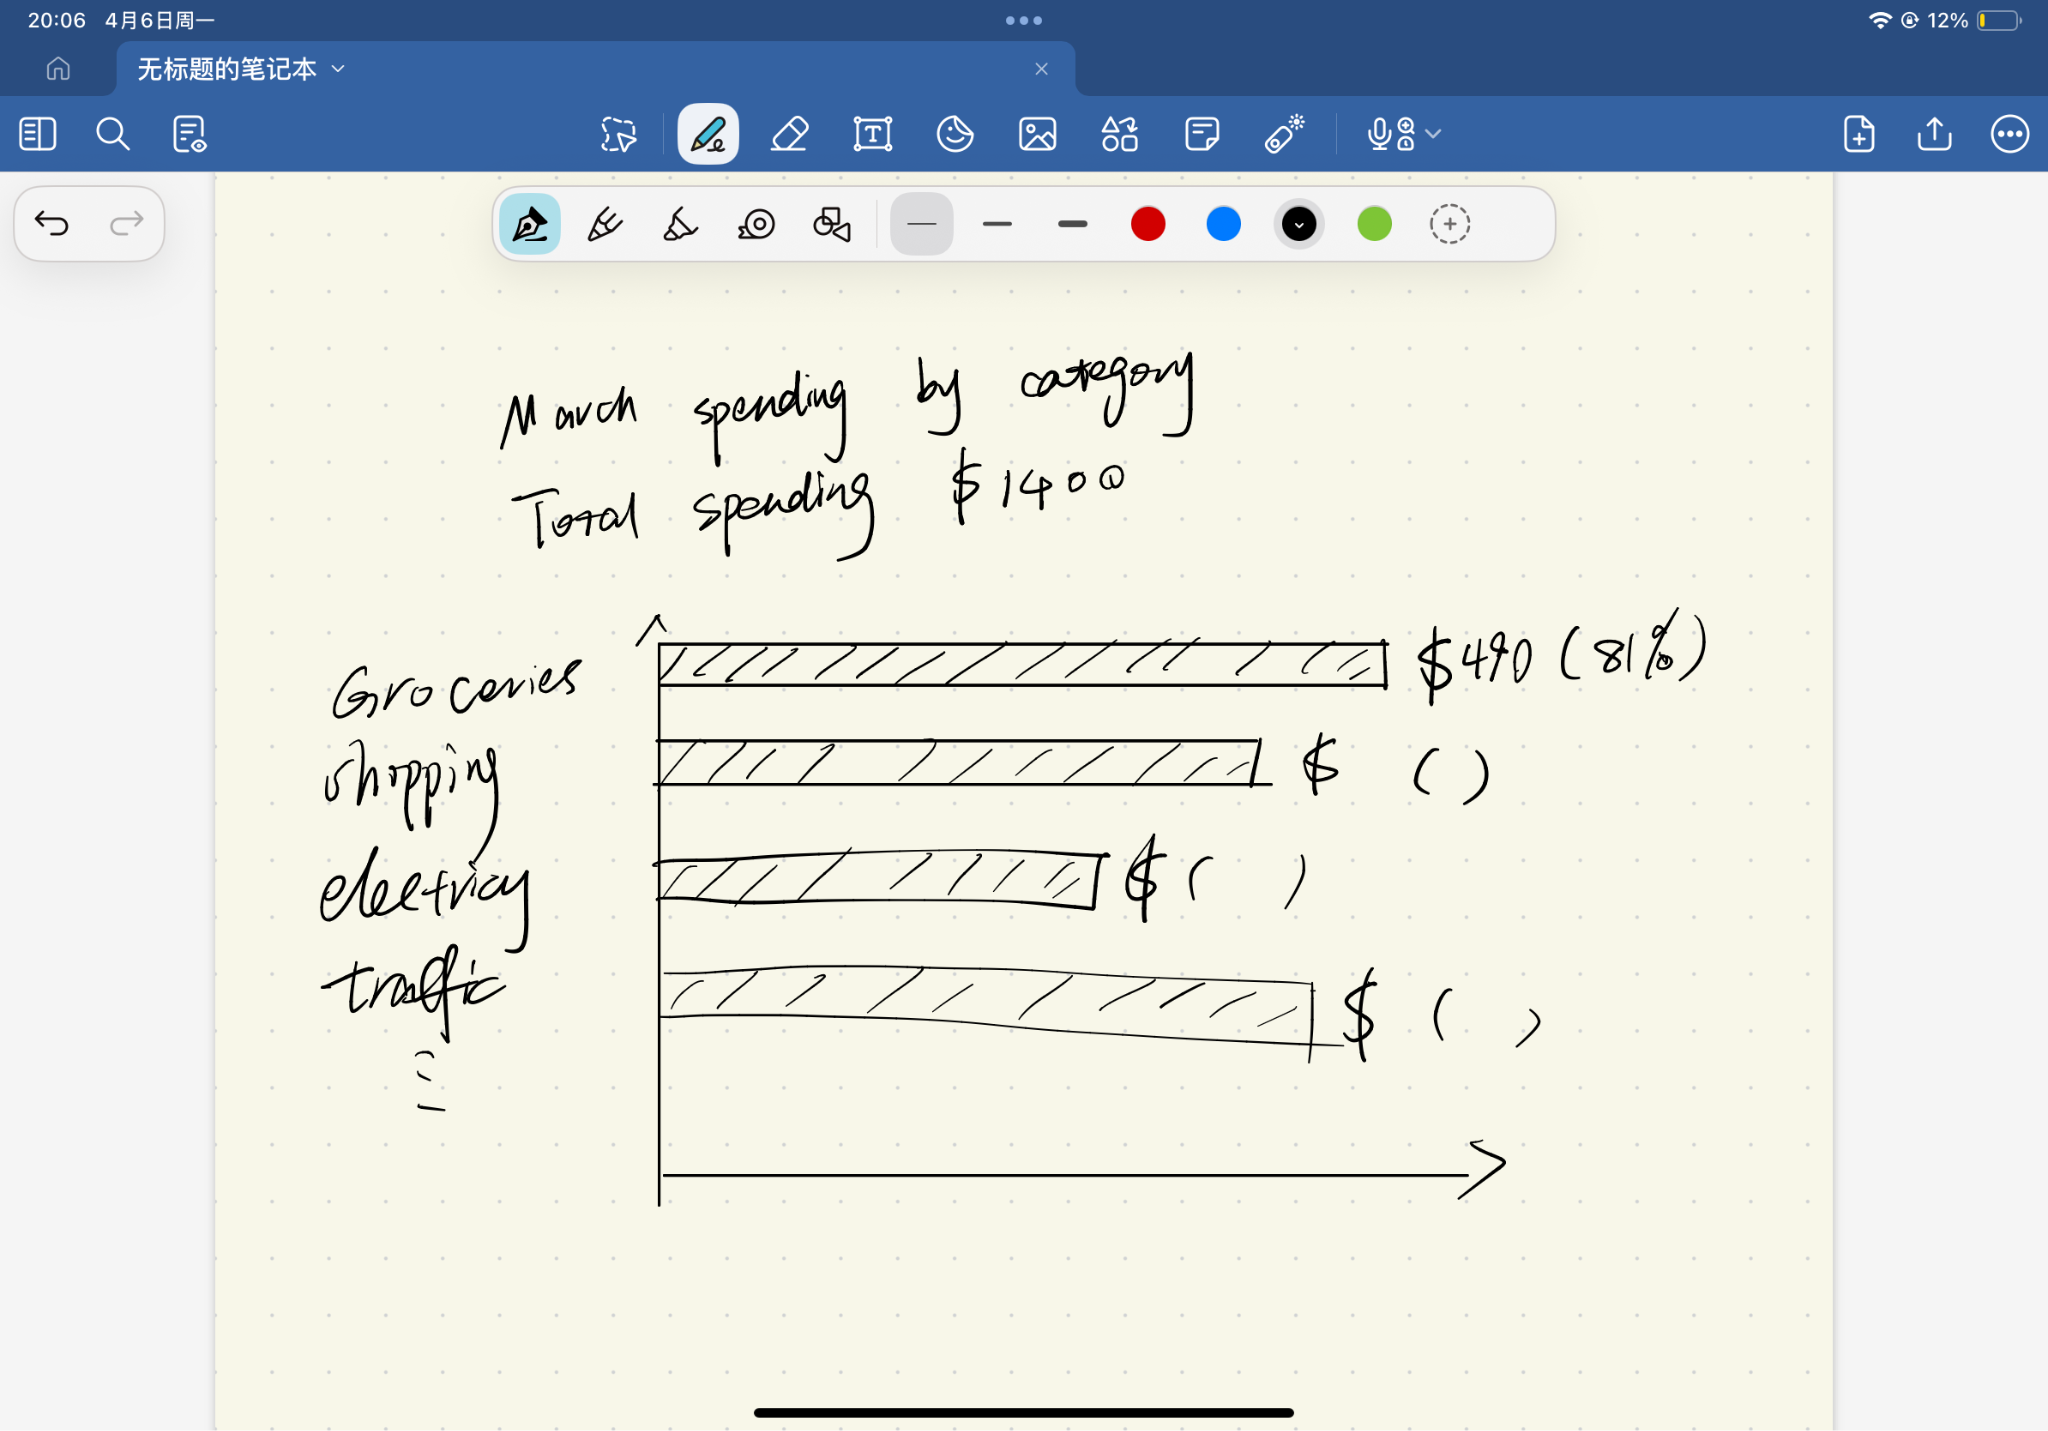 20:06 4月6日周一
12%
无标题的笔记本
March spending by category
Total spending $1400
Groceries $490 (81%)
shopping $ ( )
electricy $ ( )
traffic $ ( )